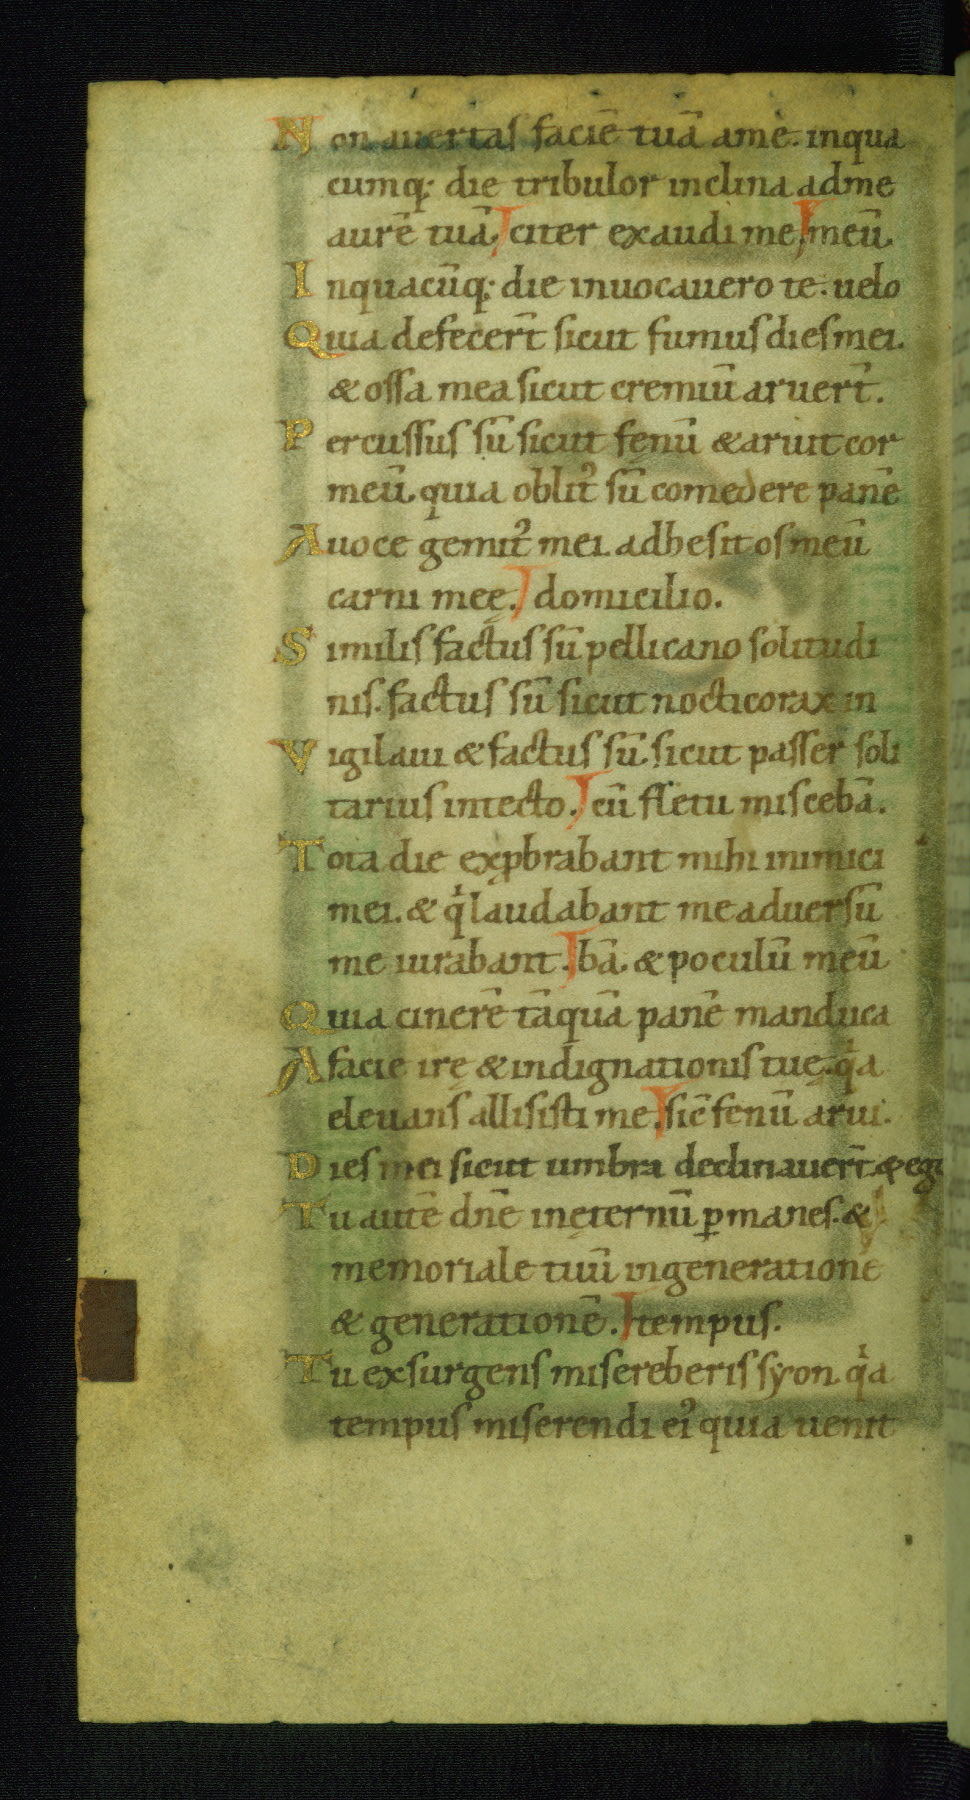 Non avertas faciē tuā a me. inqua
cumq; die tribulor inclina ad me
aurē tuā. citer exaudi me. meū.
Inquacūq; die invocavero te. velo
Quia defecer̄t sicut fumus dies mei.
& ossa mea sicut cremiū aruer̄t.
Percussus sū sicut fenū & aruit cor
meū. quia oblit᾿ sū comedere panē
A voce gemit᾿ mei. adhesit os meū
carni meę. domicilio.
Similis factus sū pellicano solitudi
nis. factus sū sicut nocticorax in
Vigilavi & factus sū. sicut passer soli
tarius in tecto. cū fletu miscebā.
Tota die exꝓbrabant mihi inimici
mei. & qⁱ laudabant me adversū
me iurabant. bā. & poculū meū
Quia cinerē tāquā panē manduca
A facie irę & indignationis tuę. qⁱa
elevans allisisti me. sic̄ fenū arui.
Dies mei sicut umbra declinaver̄t & ego
Tu autē dn̄e inęternū ꝑmanes. &
memoriale tuū in generatione
& generationē. tempus.
Tu exsurgens misereberis syon qⁱa
tempus miserendi ei᾿ quia venit